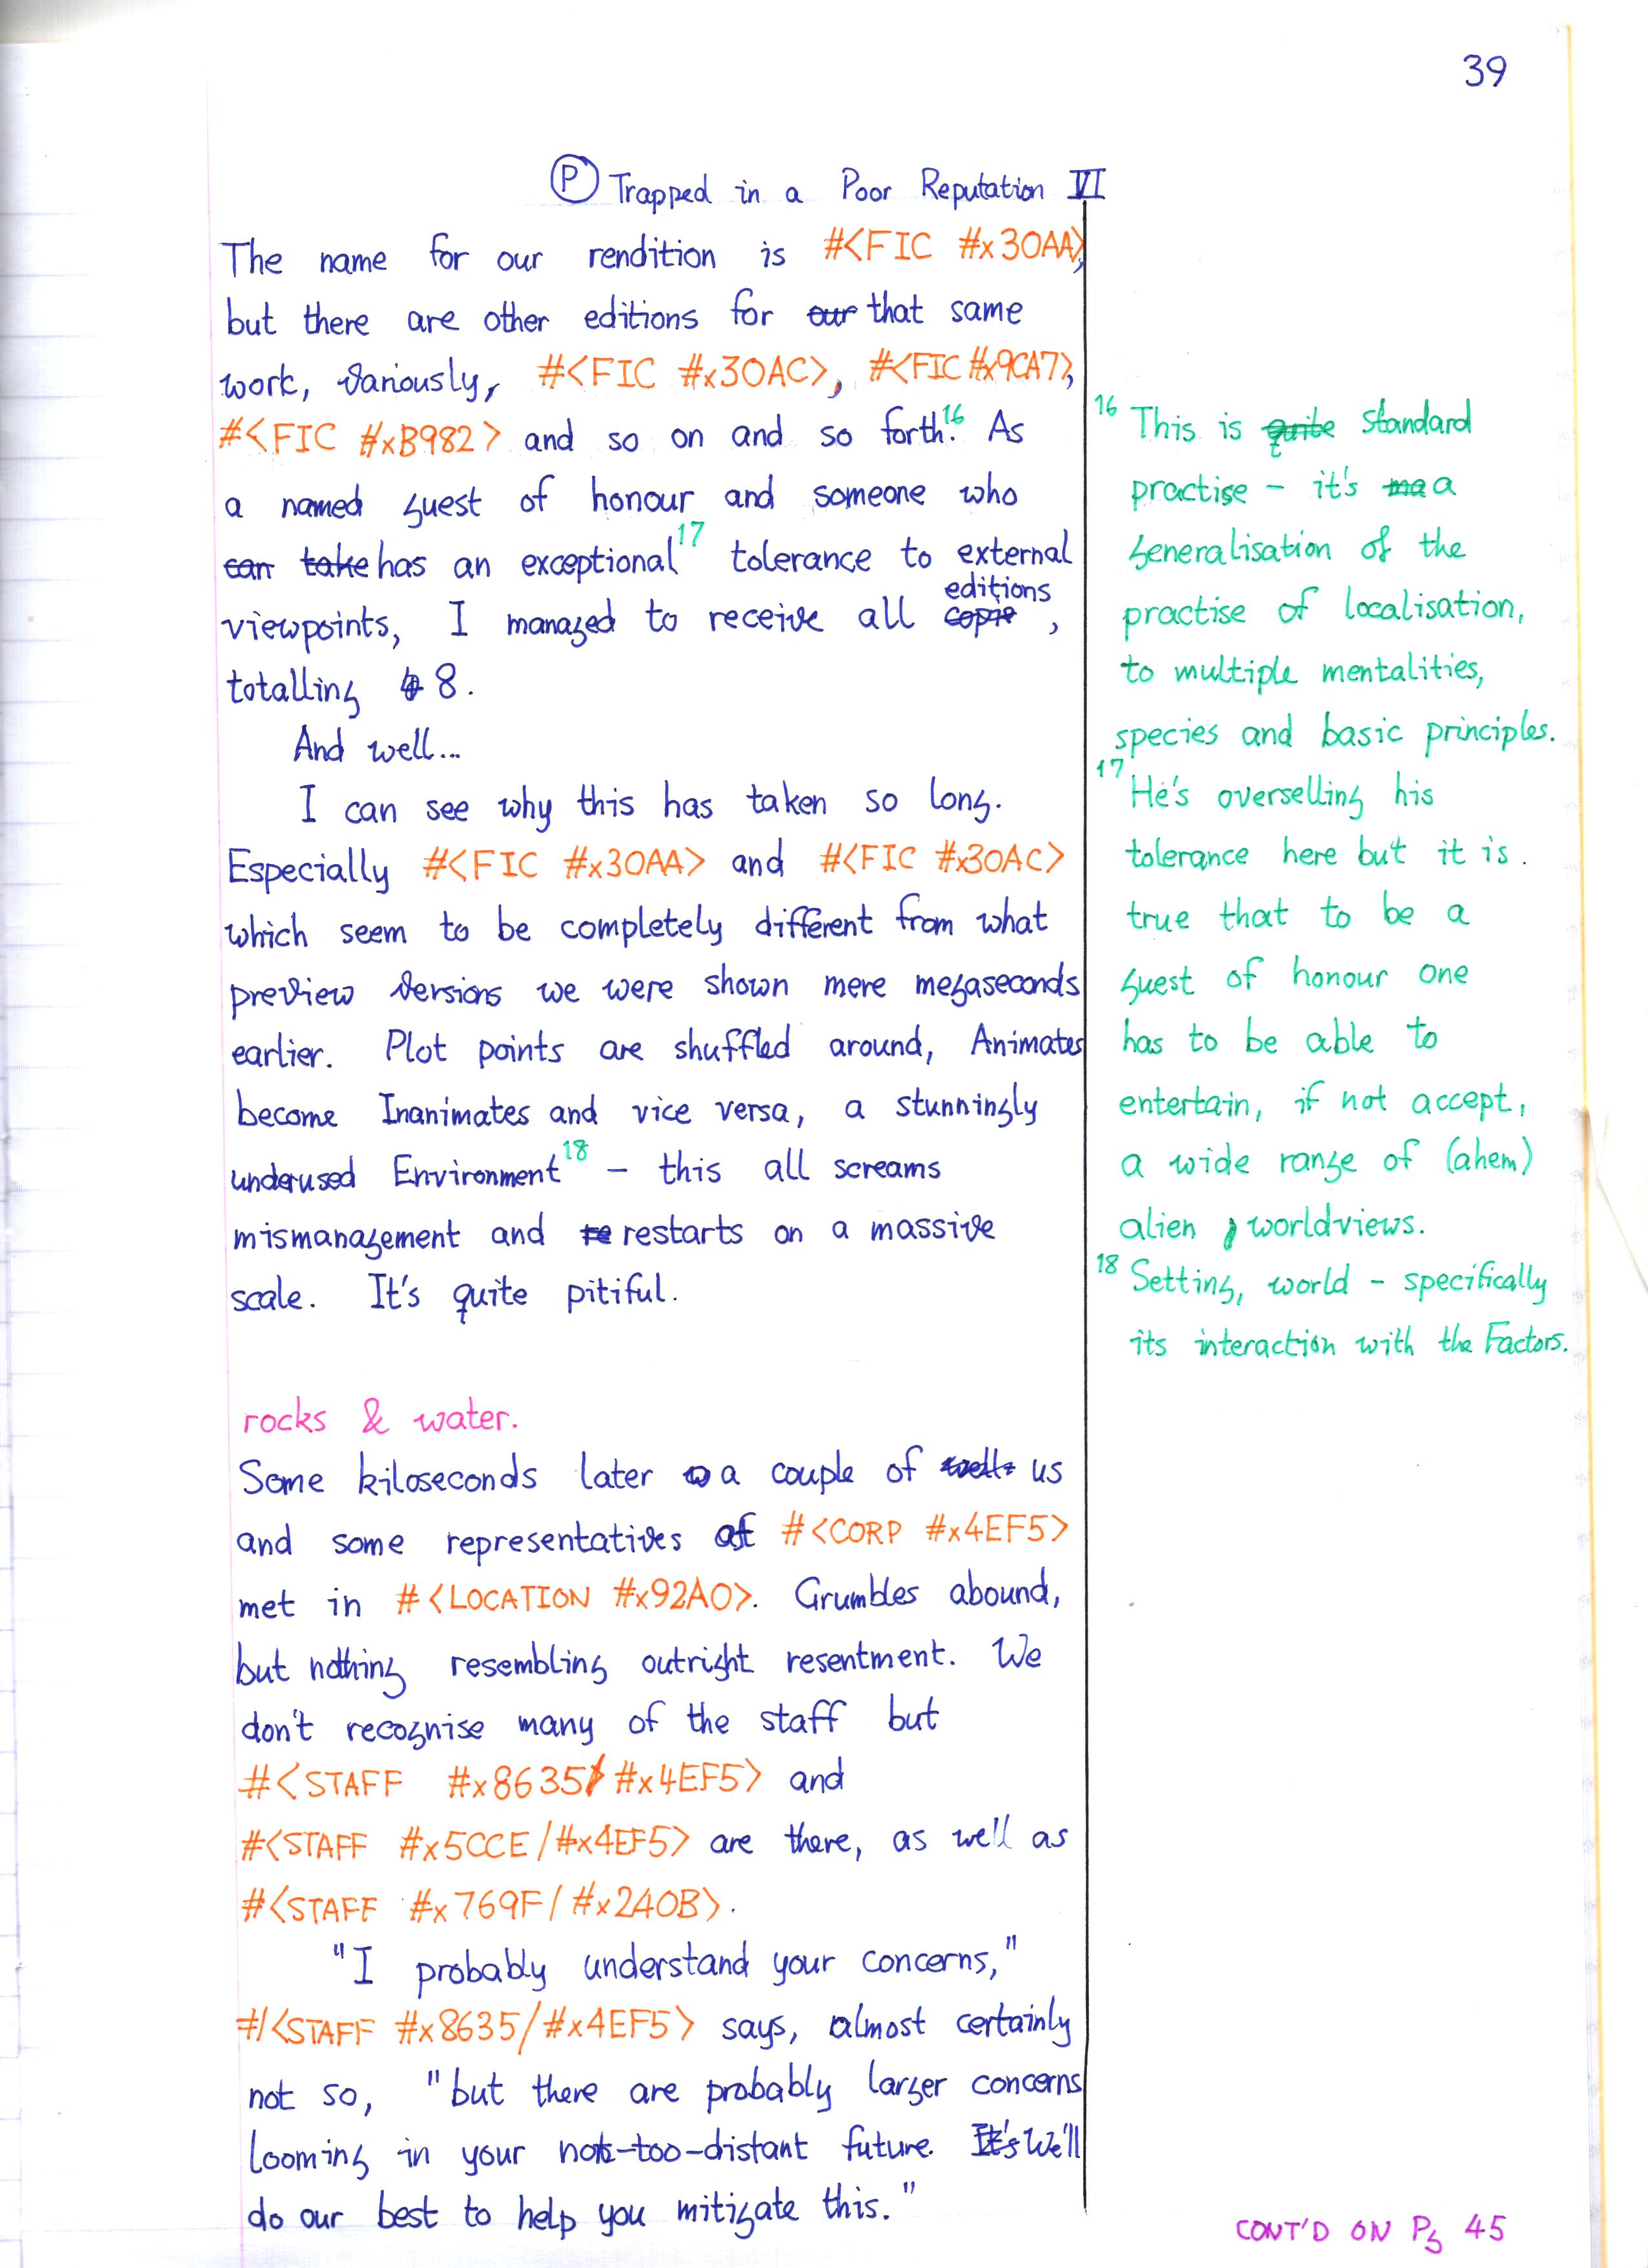 39
Ⓟ Trapped in a Poor Reputation VI
The name for our rendition is #<FIC #x30AA>,
but there are other editions for our that same
work, variously, #<FIC #x30AC>, #<FIC #x9CA7>,
#<FIC #xB982> and so on and so forth.16 As
a named guest of honour and someone who
can take has an exceptional17 tolerance to external
viewpoints, I managed to receive all copie editions,
totalling 8.
And well...
I can see why this has taken so long.
Especially #<FIC #x30AA> and #<FIC #x30AC>
which seem to be completely different from what
preview versions we were shown mere megaseconds
earlier. Plot points are shuffled around, Animates
become Inanimates and vice versa, a stunningly
underused Environment18 – this all screams
mismanagement and re restarts on a massive
scale. It's quite pitiful.
rocks & water.
Some kiloseconds later a couple of us
and some representatives of #<CORP #x4EF5>
met in #<LOCATION #x92A0>. Grumbles abound,
but nothing resembling outright resentment. We
don't recognise many of the staff but
#<STAFF #x8635/#x4EF5> and
#<STAFF #x5CCE/#x4EF5> are there, as well as
#<STAFF #x769F/#x240B>.
"I probably understand your concerns,"
#<STAFF #x8635/#x4EF5> says, almost certainly
not so, "but there are probably larger concerns
looming in your not-too-distant future. It's We'll
do our best to help you mitigate this."
16 This is quite standard
practise – it's ma a
generalisation of the
practise of localisation,
to multiple mentalities,
species and basic principles.
17 He's overselling his
tolerance here but it is
true that to be a
guest of honour one
has to be able to
entertain, if not accept,
a wide range of (ahem)
alien worldviews.
18 Setting, world – specifically
its interaction with the Factors.
CONT'D ON Pg 45